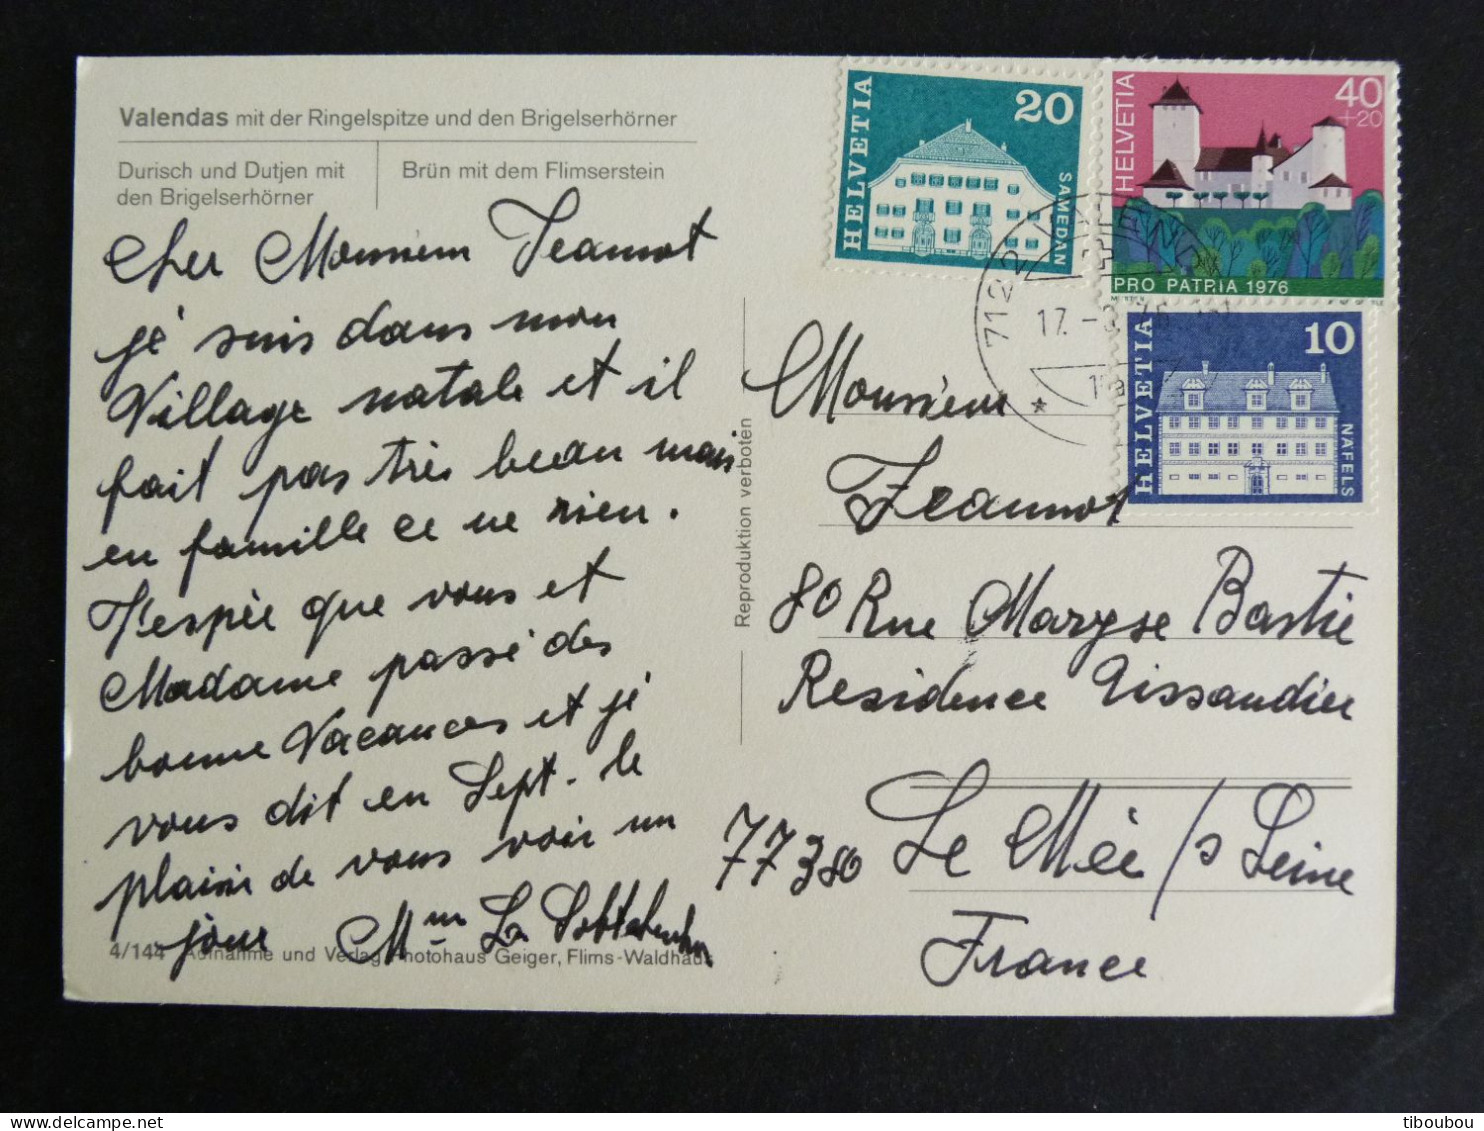 Valendas mit der Ringelspitze und den Brigelserhörner
Durisch und Dutjen mit
den Brigelserhörner
Brün mit dem Flimserstein
Cher Monsieur Jeannot
je suis dans mon
Village natale et il
fait pas très beau mais
en famille ce ne rien.
J'espère que vous et
Madame passé des
bonne Vacances et je
vous dit en Sept. le
plaisir de vous voir un
jour Mme La
4/144 Aufnahme und Verlag Photohaus Geiger, Flims-Waldhaus
Reproduktion verboten
HELVETIA
20
SAMEDAN
HELVETIA
40
+20
PRO PATRIA 1976
HELVETIA
10
NÄFELS
7122
17. -
Monsieur
Jeannot
80 Rue Maryse Bastié
Residence Tissandier
77380 Le Mée / s Seine
France
tiboubou